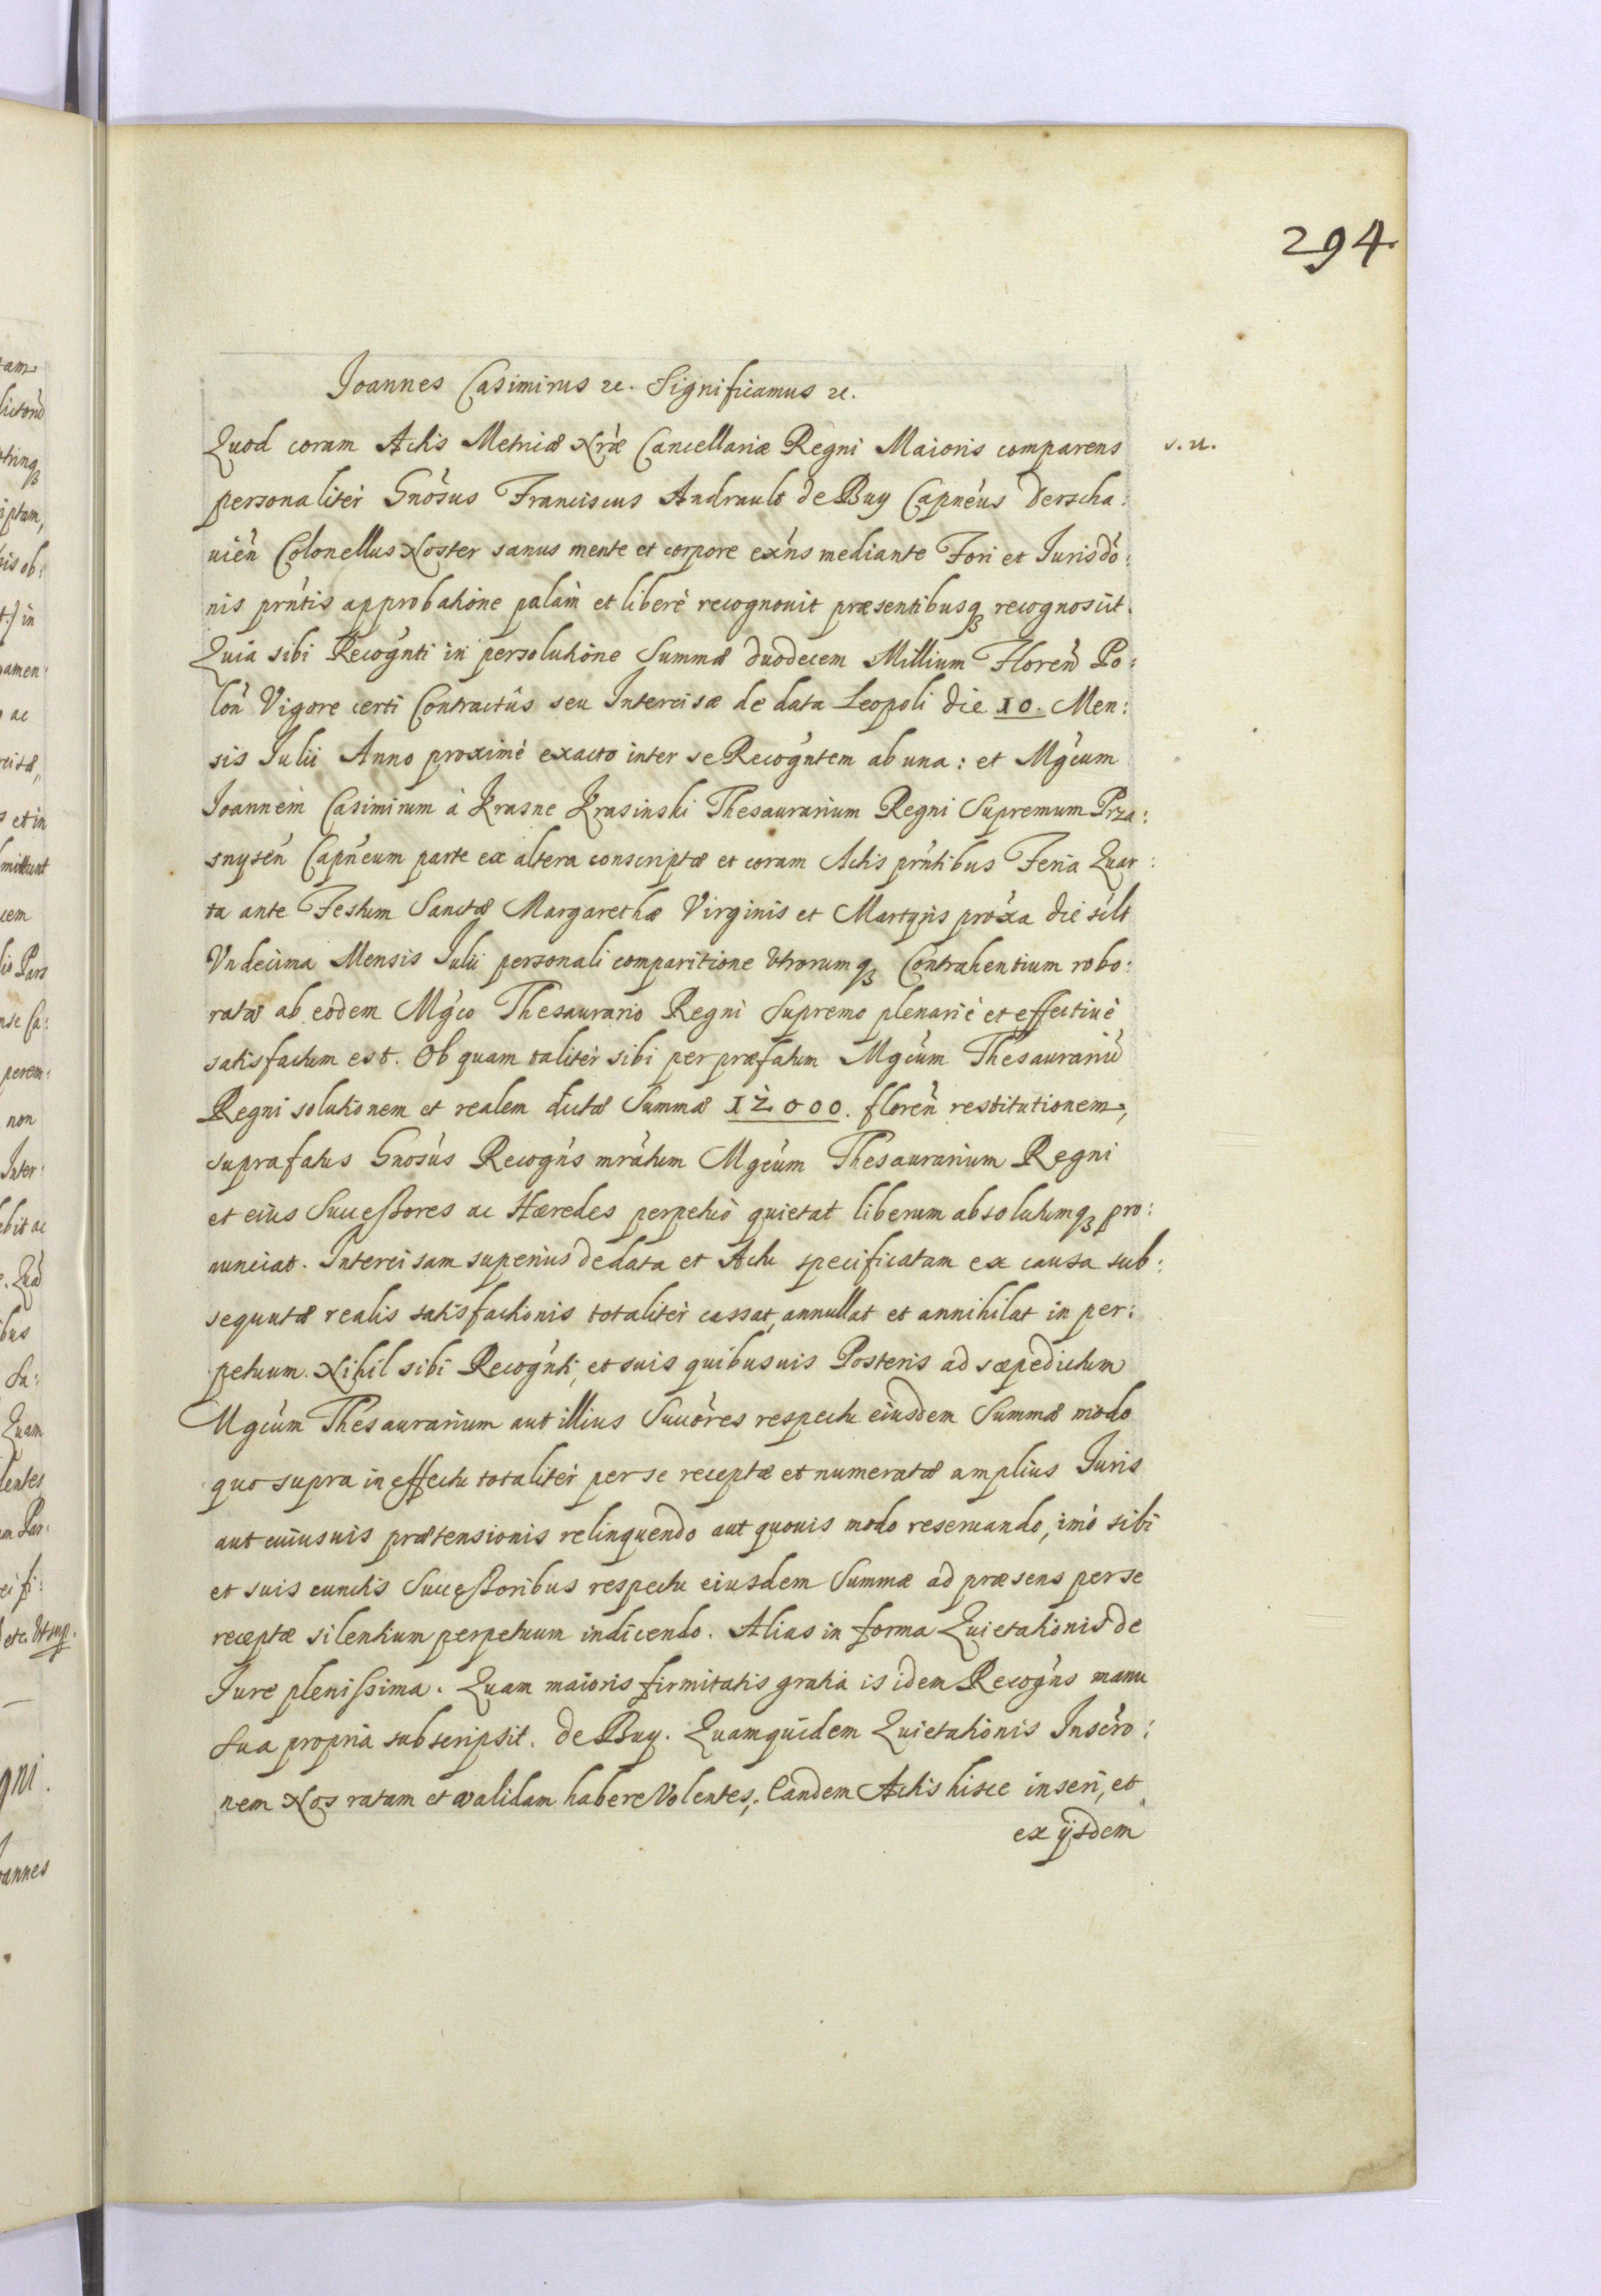 294.
Joannes Casimirus etc. Significamus etc.
Quod coram Actis Metricæ Nræ Cancellariæ Regni Maioris comparens
s. n.
personaliter Gnosus Franciscus Andrault de Buy Capneus Derscha:
uien Colonellus Noster sanus mente et corpore exns mediante Fori et Jurisdo:
nis prntis approbatione palam et liberè recognouit præsentibusq recognoscit.
Quia sibi Recognti in persolutione Summæ duodecem Millium Floren Po:
lon Vigore certi Contractûs seu Intercisæ de data Leopoli die 10. Men:
sis Julii Anno proximè exacto inter se Recogntem ab una: et Mgcum
Joannem Casimirum à Krasne Krasinski Thesaurarium Regni Supremum Prza:
snysen Capneum parte ex altera conscriptæ et coram Actis prntibus Feria Quar:
ta ante Festum Sanctæ Margarethæ Virginis et Martyris proxa die silt
Vndecima Mensis Julii personali comparitione Vtrorumq Contrahentium robo:
ratæ ab eodem Mgco Thesaurario Regni Supremo plenariè et effectiuè
satisfactum est. Ob quam taliter sibi per præfatum Mgcum Thesaurariu
Regni solutionem et realem dictæ Summæ 12000. floren restitutionem,
suprafatus Gnosus Recogns mratum Mgcum Thesaurarium Regni
et eius Successores ac Hæredes perpetuò quietat liberum absolutumq pro:
nunciat. Intercisam superius de data et Actu specificatam ex causa sub:
sequutæ realis satisfactionis totaliter cassat, annullat et annihilat in per:
petuum. Nihil sibi Recognti, et suis quibusuis Posteris ad sæpedictum
Mgcum Thesaurarium aut illius Succores respectu eiusdem Summæ modo
quo supra in effectu totaliter per se receptæ et numeratæ amplius Juris
aut cuiusuis prætensionis relinquendo aut quouis modo reseruando, imò sibi
et suis cunctis Successoribus respectu eiusdem Summæ ad præsens per se
receptæ silentium perpetuum indicendo. Alias in forma Quietationis de
Jure plenissima. Quam maioris firmitatis gratia is idem Recogns manu
sua propria subscripsit. de Buy. Quamquidem Quietationis Inscro:
nem Nos ratam et validam habere Volentes, Eandem Actis hisce inseri, et
ex ijsdem